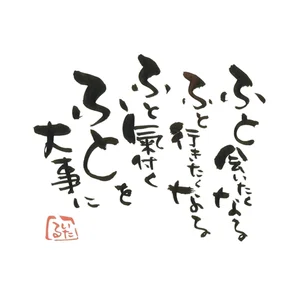 ふと会いたくなる
ふと行きたくなる
ふと氣付く
ふとを
大事に